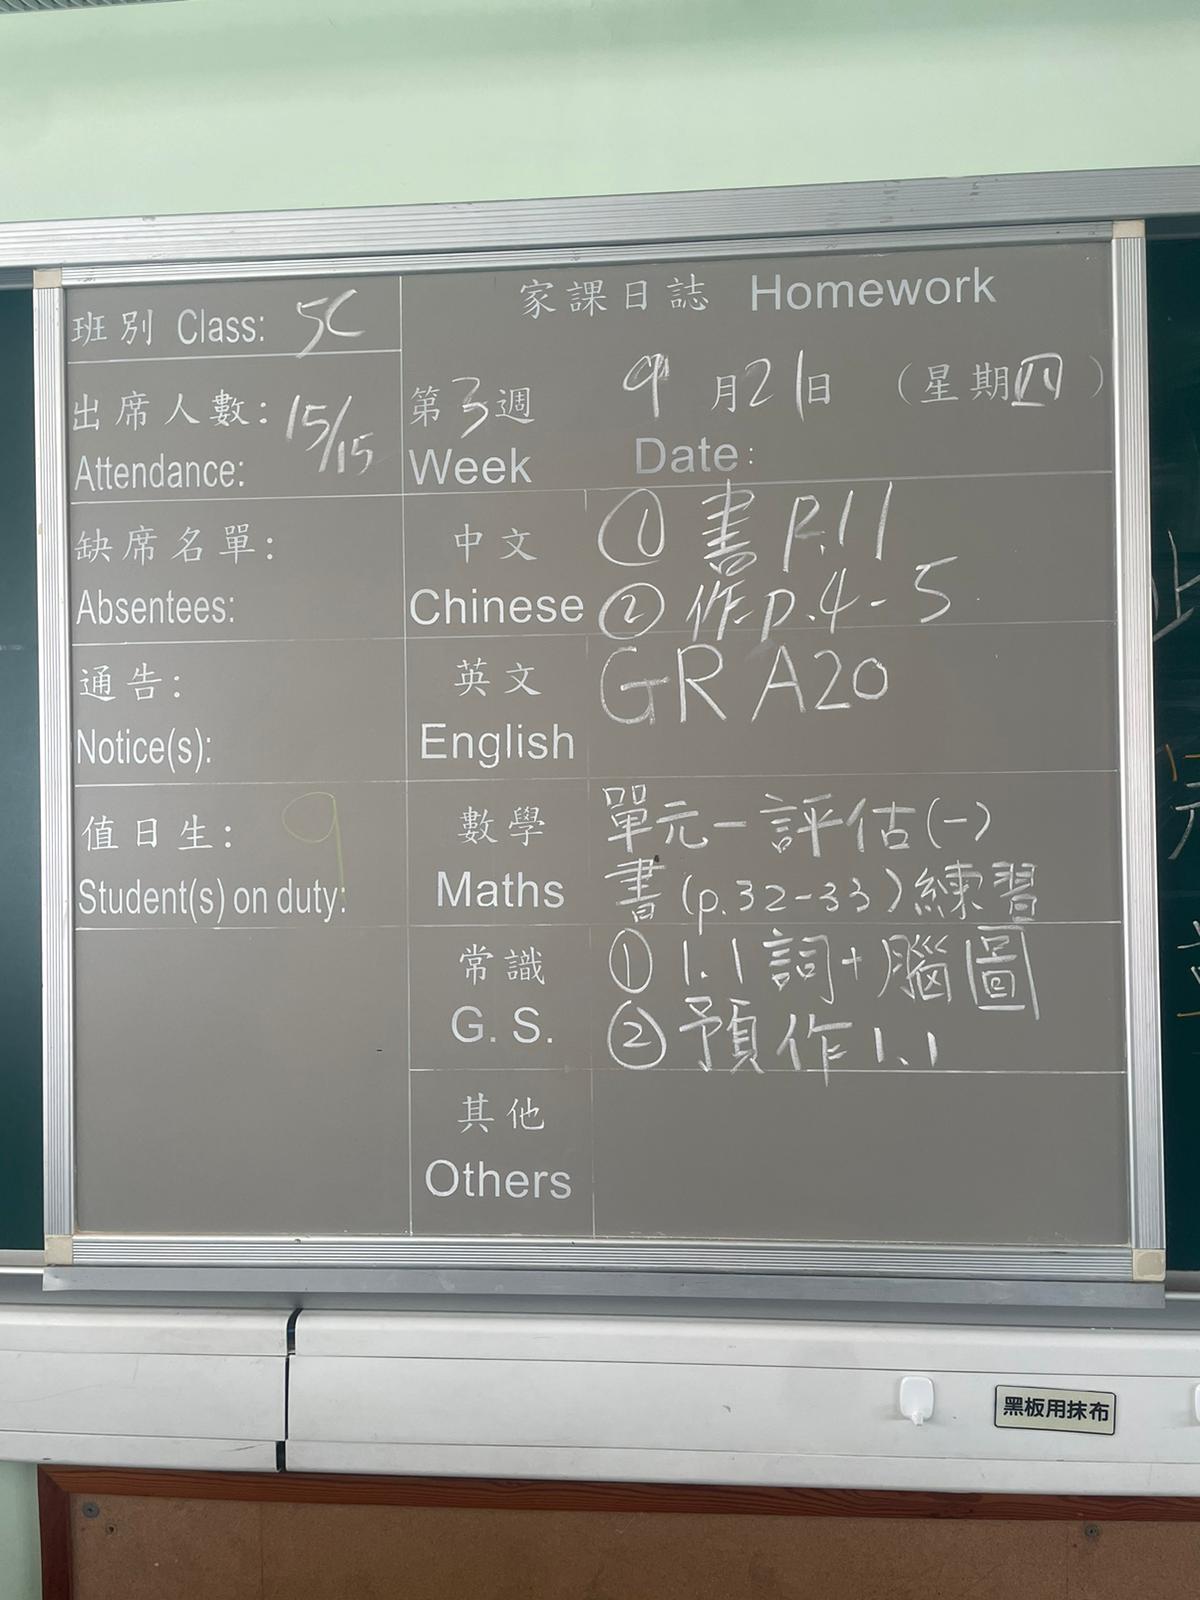 班別 Class: 5C
出席人數: 15/15
Attendance:
缺席名單:
Absentees:
通告:
Notice(s):
值日生: 9
Student(s) on duty:
家課日誌 Homework
第3週 9月21日 (星期四)
Week Date:
中文 ① 書 P.11
Chinese ② 作p.4-5
英文 GR A20
English
數學 單元一評估(一)
Maths 書(p.32-33)練習
常識 ① 1.1詞+腦圖
G. S. ② 預作1.1
其他
Others
黑板用抹布